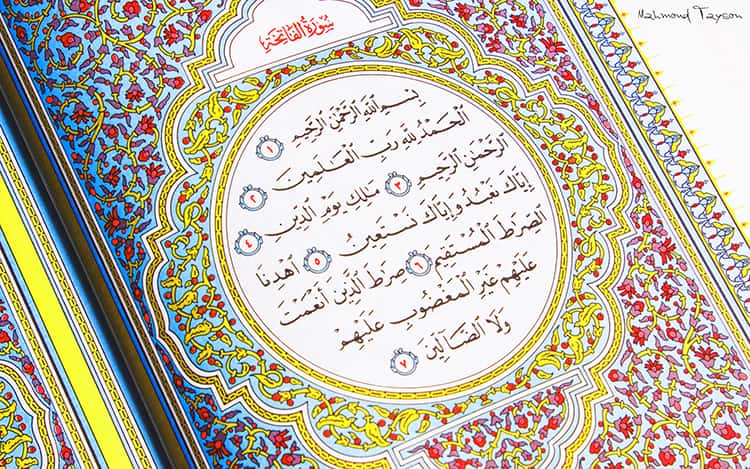 Mahmond Tayson
سورة الفاتحة
بسم الله الرحمن الرحيم ١
الحمد لله رب العلمين ٢
الرحمن الرحيم ٣ ملك يوم الدين ٤
إياك نعبد وإياك نستعين ٥ اهدنا
الصرط المستقيم ٦ صرط الذين أنعمت
عليهم غير المغضوب عليهم
ولا الضالين ٧